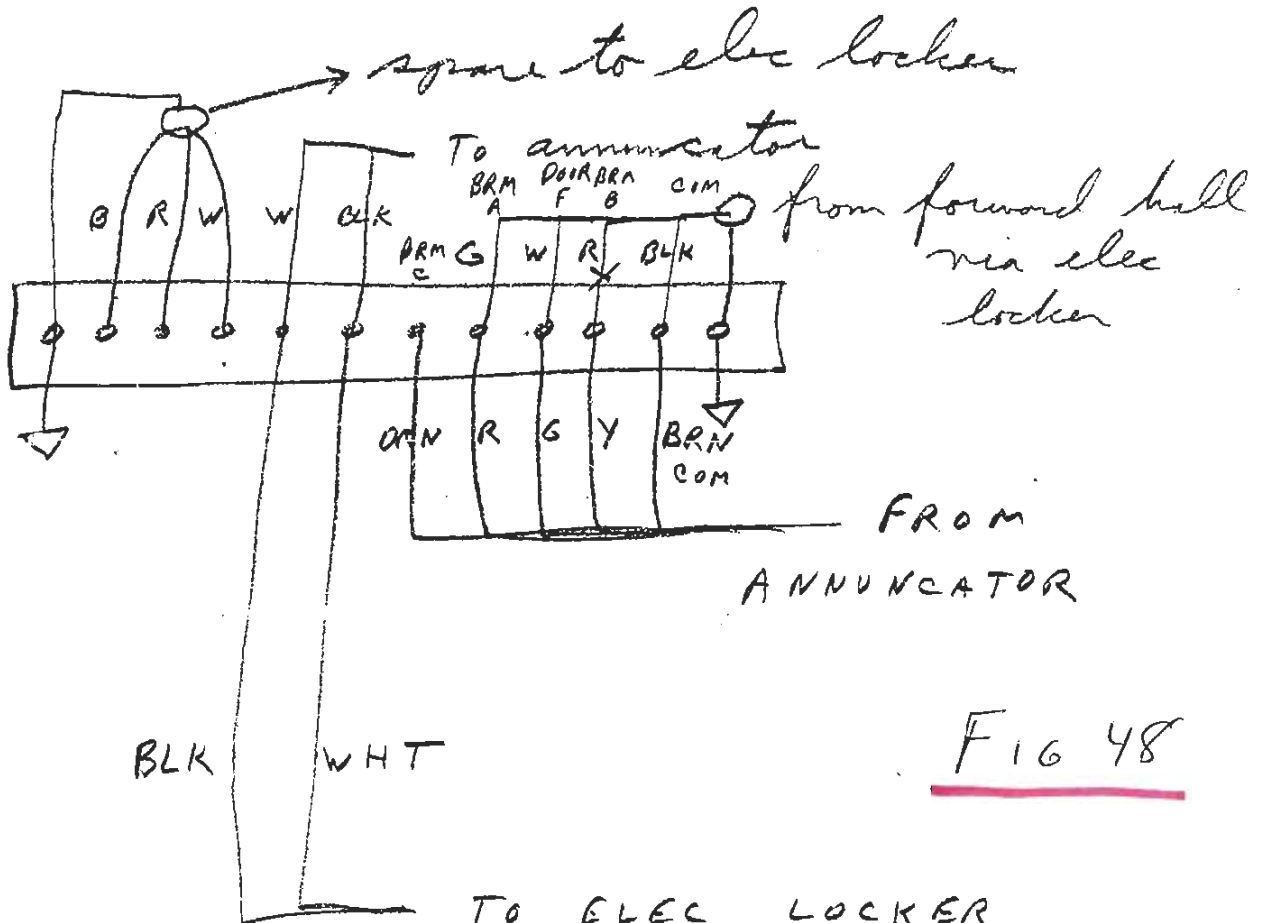 spare to elec locker
To annuncator
BRM DOOR BRM COM
A F B
from forward hall
via elec
locker
B R W W BLK
BRM G W R BLK
C
ORN R G Y BRN
COM
FROM
ANNUNCATOR
BLK WHT
FIG 48
TO ELEC LOCKER